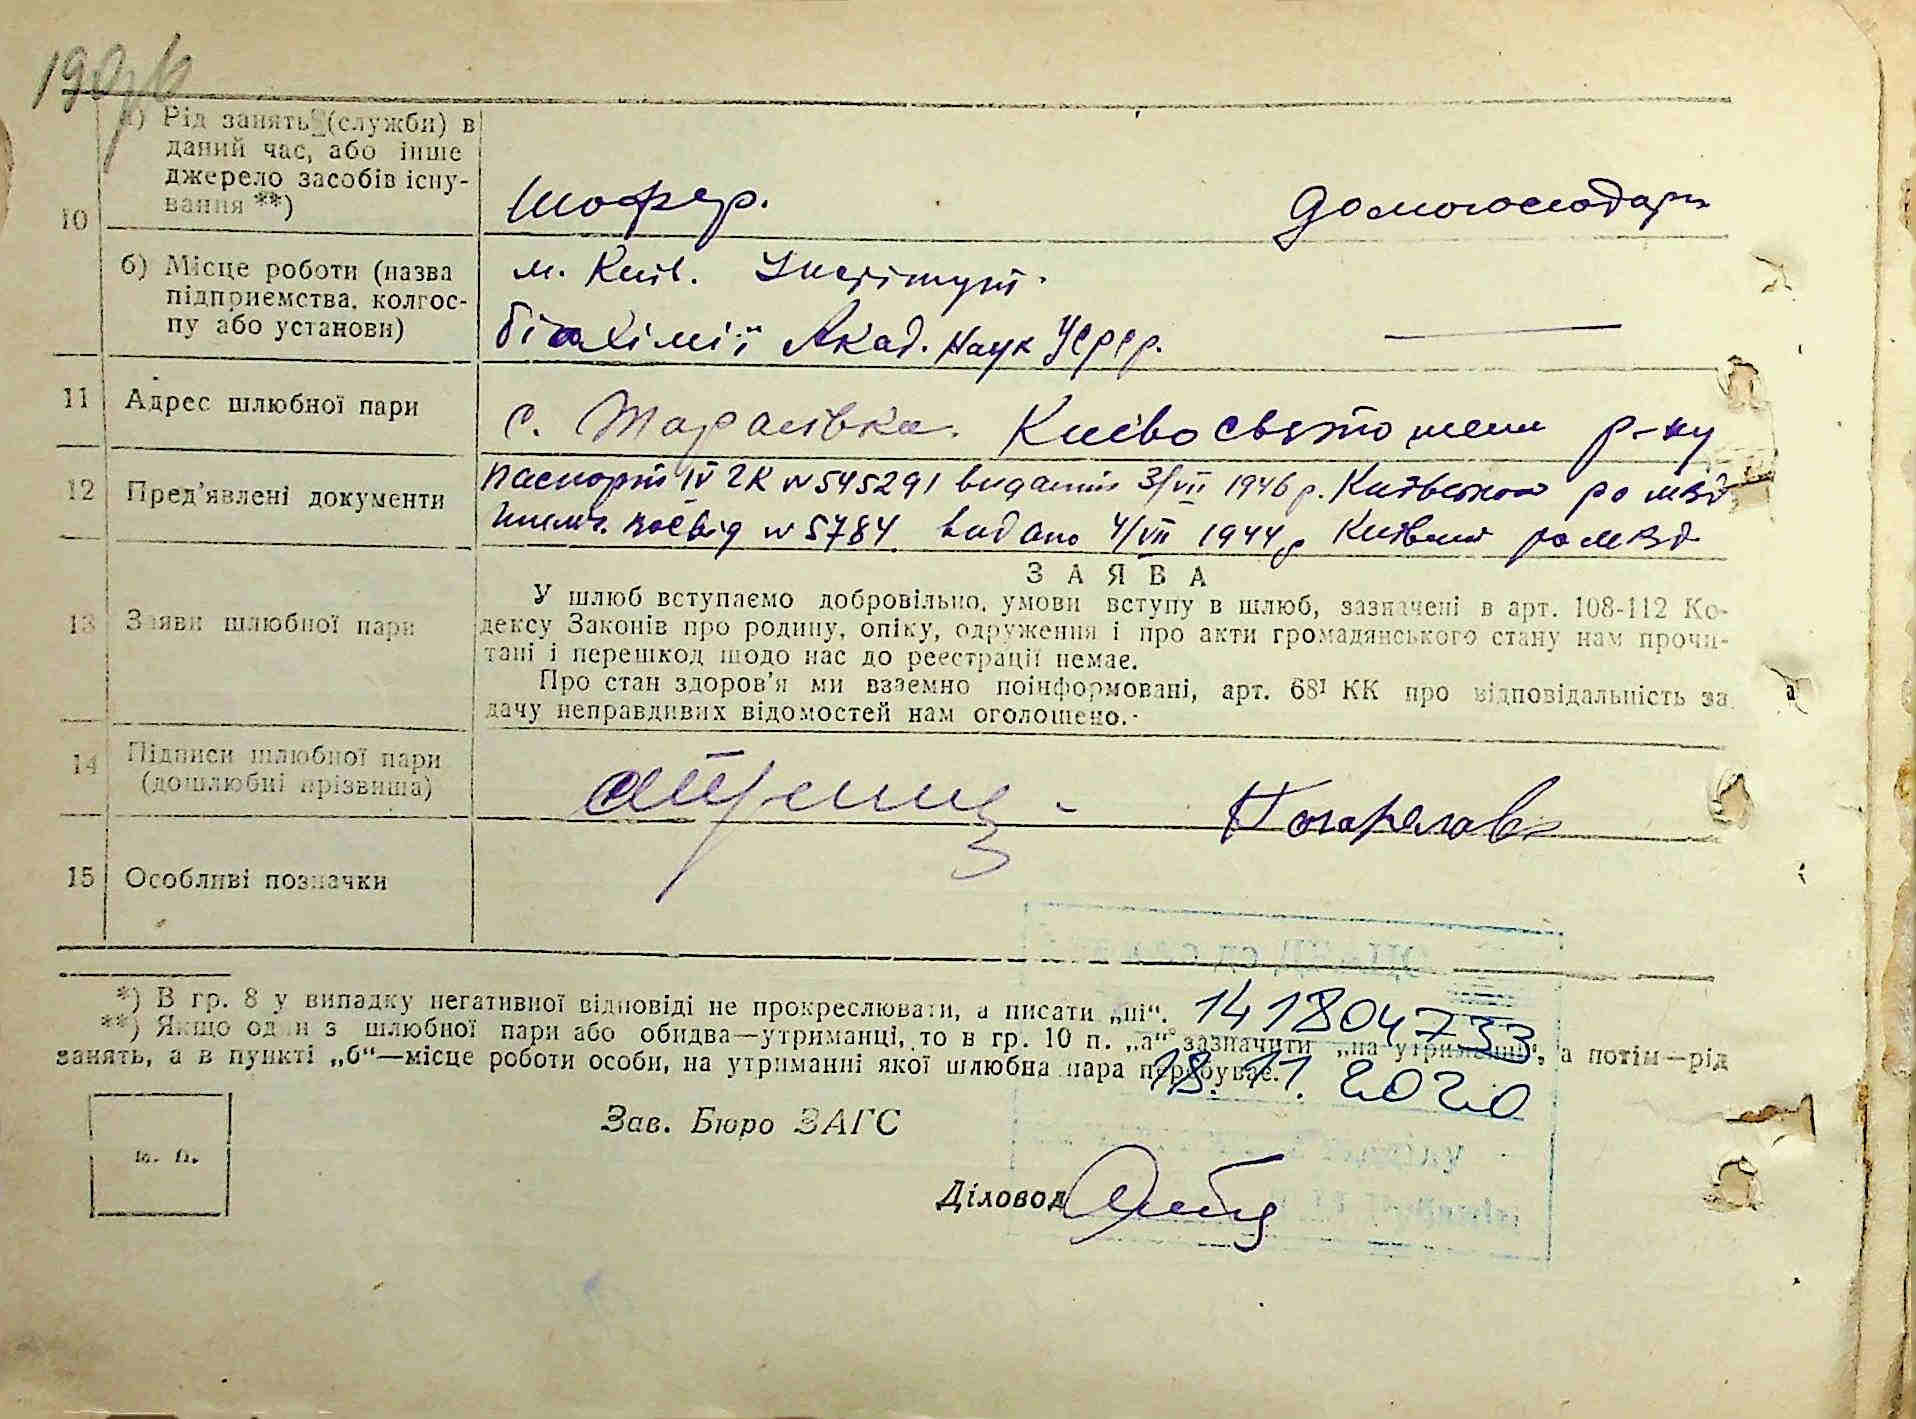 а) Рід занять (служби) в
даний час, або інше
джерело засобів існу-
вання **)
10
Шофер.
домогосподарк
б) Місце роботи (назва
підприємства, колгос-
пу або установи)
м. Київ. Інститут
біохімії Акад. Наук УРСР.
11 Адрес шлюбної пари
с. Тарасівка. Києвосвятошин р-ну
12 Пред'явлені документи
Паспорт IV ГК № 545291 видатий 3/VII 1946 р.
посвід № 5784 видано 4/VII 1944 р
З А Я В А
13 Заяви шлюбної пари
У шлюб вступаємо добровільно, умови вступу в шлюб, зазначені в арт. 108-112 Ко-
дексу Законів про родину, опіку, одруження і про акти громадянського стану нам прочи-
тані і перешкод щодо нас до реєстрації немає.
Про стан здоров'я ми взаємно поінформовані, арт. 68¹ КК про відповідальність за
дачу неправдивих відомостей нам оголошено.
14 Підписи шлюбної пари
(дошлюбні прізвища)
15 Особливі позначки
*) В гр. 8 у випадку негативної відповіді не прокреслювати, а писати „ні“.
1418047 33
**) Якщо один з шлюбної пари або обидва—утриманці, то в гр. 10 п. „а“ зазначити „на утриманні“, а потім—рід
занять, а в пункті „б“—місце роботи особи, на утриманні якої шлюбна пара перебуває.
18.11.2020
м. п.
Зав. Бюро ЗАГС
Діловод